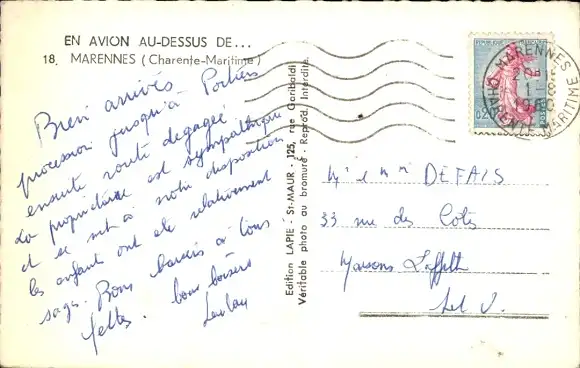 EN AVION AU-DESSUS DE...
18. MARENNES (Charente-Maritime)
Bien arrivés
procession jusqu'à Poitiers
ensuite route dégagée
La propriétaire est sympathique
et se met à notre disposition
les enfant ont été relativement
sages. Bons baisers à tous
bons baisers
Edition LAPIE - St-MAUR - 125, rue Garibaldi
Véritable photo au bromure - Reprod. Interdite.
MARENNES
1960
CHARENTE MARITIME
0,20
Mr e mme DEFAIS
33 rue des Cotes
Maisons Laffitte
S et O.